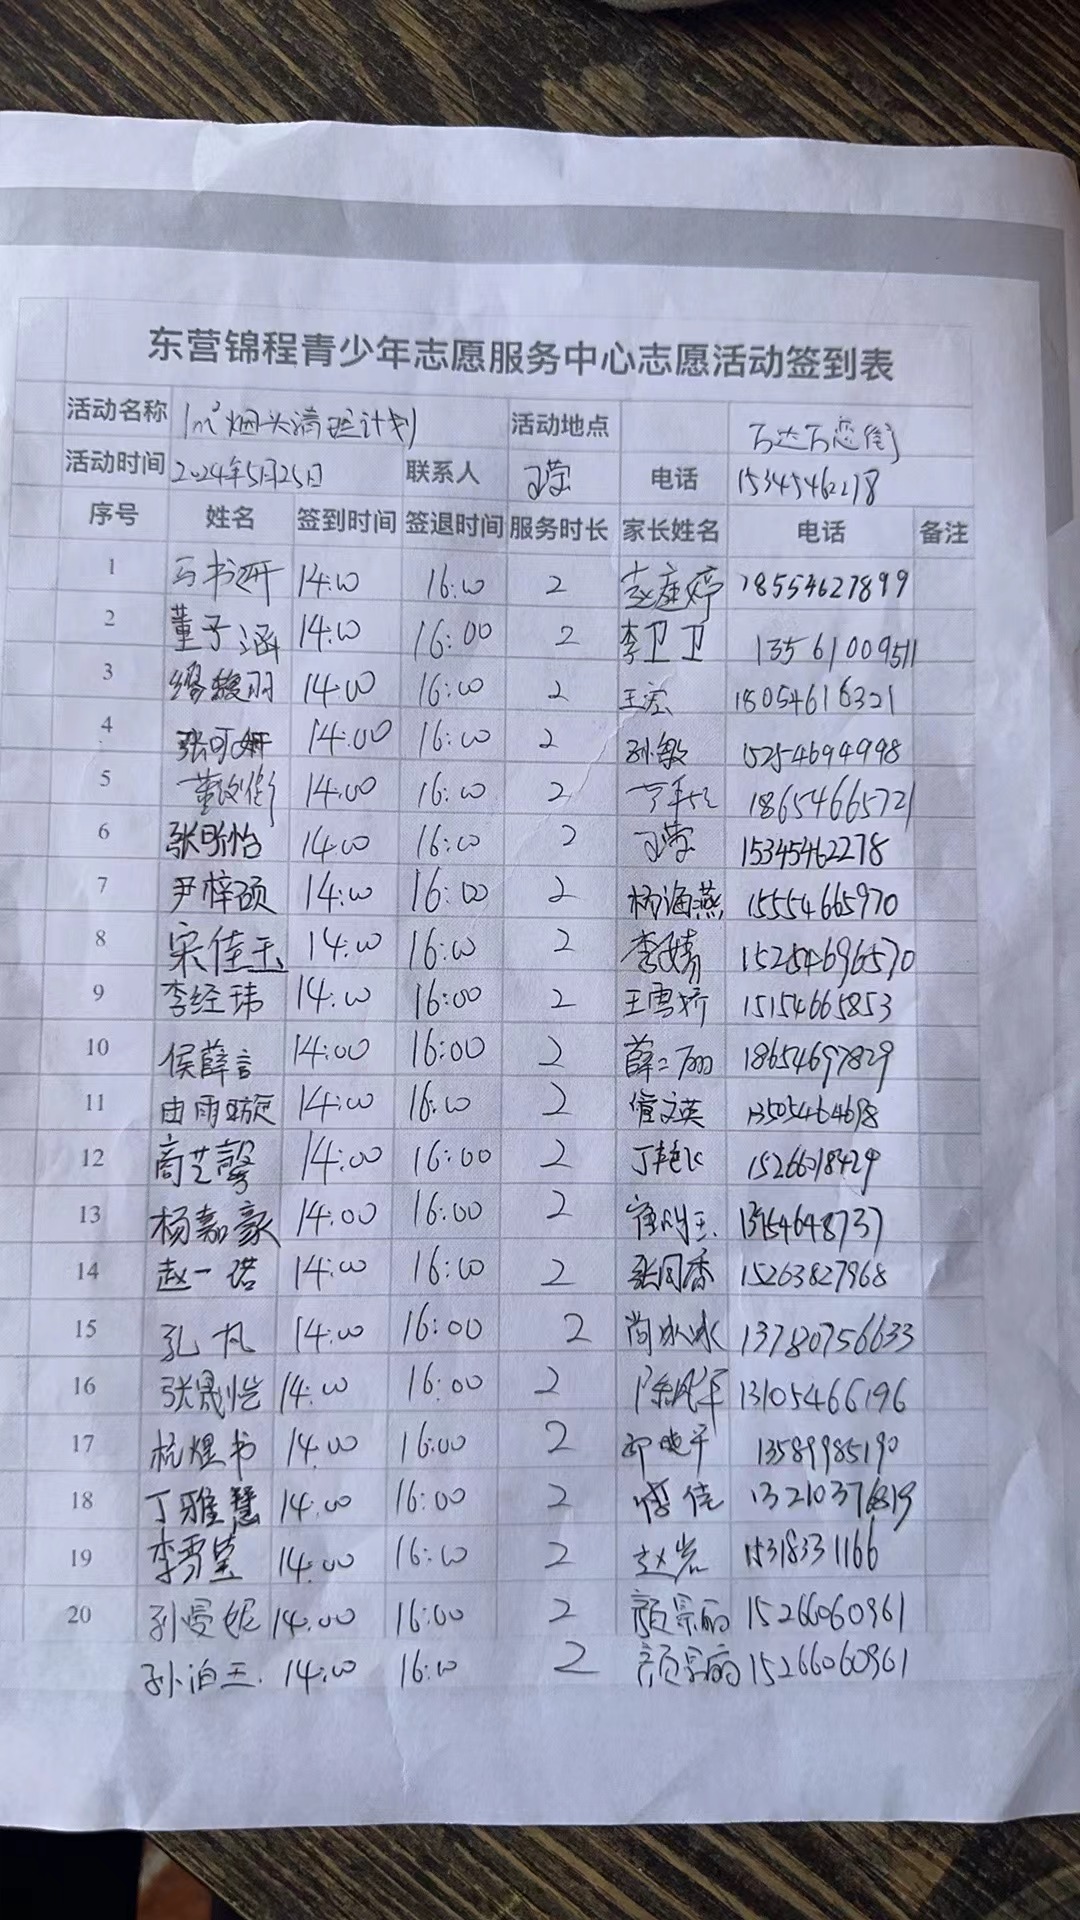 东营锦程青少年志愿服务中心志愿活动签到表
活动名称 1m²烟头清理计划 活动地点 万达万恋街
活动时间 2024年5月25日 联系人 电话 15345462278
序号 姓名 签到时间 签退时间 服务时长 家长姓名 电话 备注
1 马书妍 14:00 16:00 2 18554627899
2 董子涵 14:00 16:00 2 李卫卫 13561009511
3 缪馥羽 14:00 16:00 2 王宏 18054616321
4 张可妍 14:00 16:00 2 孙敏 15254694998
5 14:00 16:00 2 18654665721
6 张昕怡 14:00 16:00 2 15345462278
7 尹梓硕 14:00 16:00 2 杨海燕 15554665970
8 宋佳玉 14:00 16:00 2 李婧 15254696570
9 李经玮 14:00 16:00 2 王雪娇 15154665853
10 侯薛言 14:00 16:00 2 薛二丽 18654697829
11 由雨璇 14:00 16:00 2 13505464698
12 商芝馨 14:00 16:00 2 丁艳飞 15266018429
13 杨嘉豪 14:00 16:00 2 崔明玉 13954648737
14 赵一诺 14:00 16:00 2 张同香 15263827968
15 孔凡 14:00 16:00 2 尚冰冰 13780756633
16 张晟恺 14:00 16:00 2 徐风军 13105466196
17 杭煜书 14:00 16:00 2 邱晓平 13589985190
18 丁雅慧 14:00 16:00 2 13210376819
19 李雪莹 14:00 16:00 2 赵岩 15318331166
20 孙曼妮 14:00 16:00 2 颜景丽 15266060961
孙泊玉 14:00 16:00 2 颜景丽 15266060961